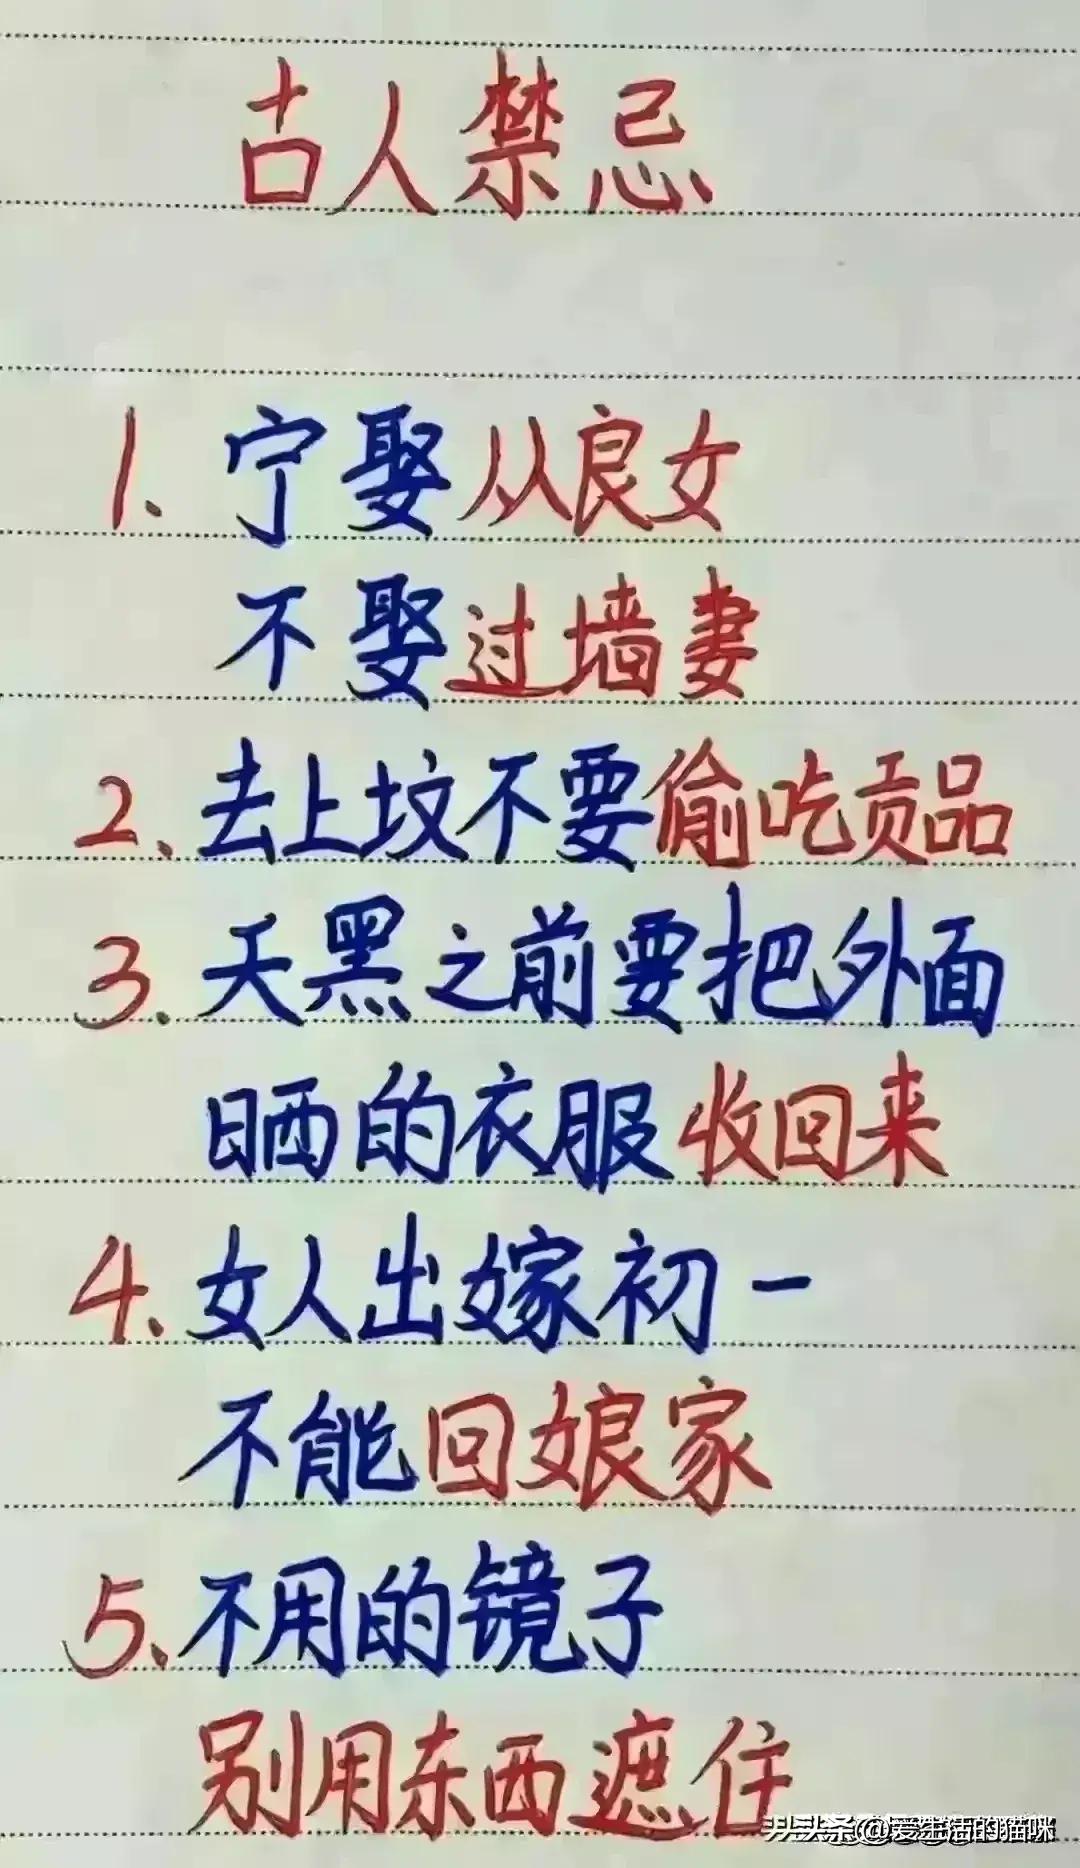 古人禁忌
1. 宁娶从良女
不娶过墙妻
2. 去上坟不要偷吃贡品
3. 天黑之前要把外面
晒的衣服收回来
4. 女人出嫁初一
不能回娘家
5. 不用的镜子
别用东西遮住
头条@爱生活的猫咪